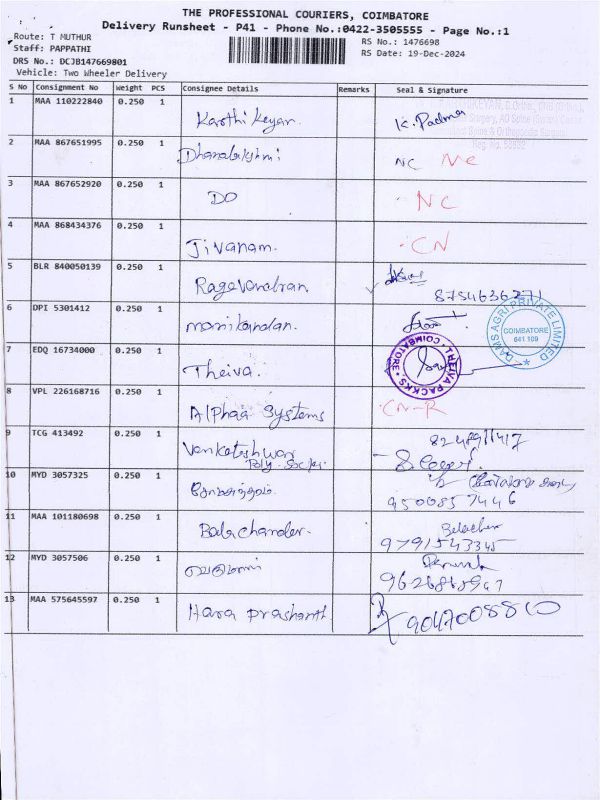 THE PROFESSIONAL COURIERS, COIMBATORE
Delivery Runsheet - P41 - Phone No.:0422-3505555 - Page No.:1
Route: T MUTHUR
RS No.: 1476698
Staff: PAPPATHI
RS Date: 19-Dec-2024
DRS No.: DCJB147669801
Vehicle: Two Wheeler Delivery
S No Consignment No Weight PCS Consignee Details Remarks Seal & Signature
1 MAA 110222840 0.250 1 Karthikeyan. K. Padma
2 MAA 867651995 0.250 1 Dhanalakshmi NC
3 MAA 867652920 0.250 1 DO NC
4 MAA 868434376 0.250 1 Jivanam. CN
5 BLR 840050139 0.250 1 Ragavendran. 8754636271
6 DPI 5301412 0.250 1 manikandan.
DAMS AGRI PRIVATE LIMITED
COIMBATORE
641 109
7 EDQ 16734000 0.250 1 Theiva.
THEIVA PACKKS
COIMBATORE
8 VPL 226168716 0.250 1 Alphaa Systems CN-R
9 TCG 413492 0.250 1 Venkateshwar
Poly
10 MYD 3057325 0.250 1
9500857446
11 MAA 101180698 0.250 1 Balachander. 9791543345
12 MYD 3057506 0.250 1
13 MAA 575645597 0.250 1 Hara prashanth 9047008810